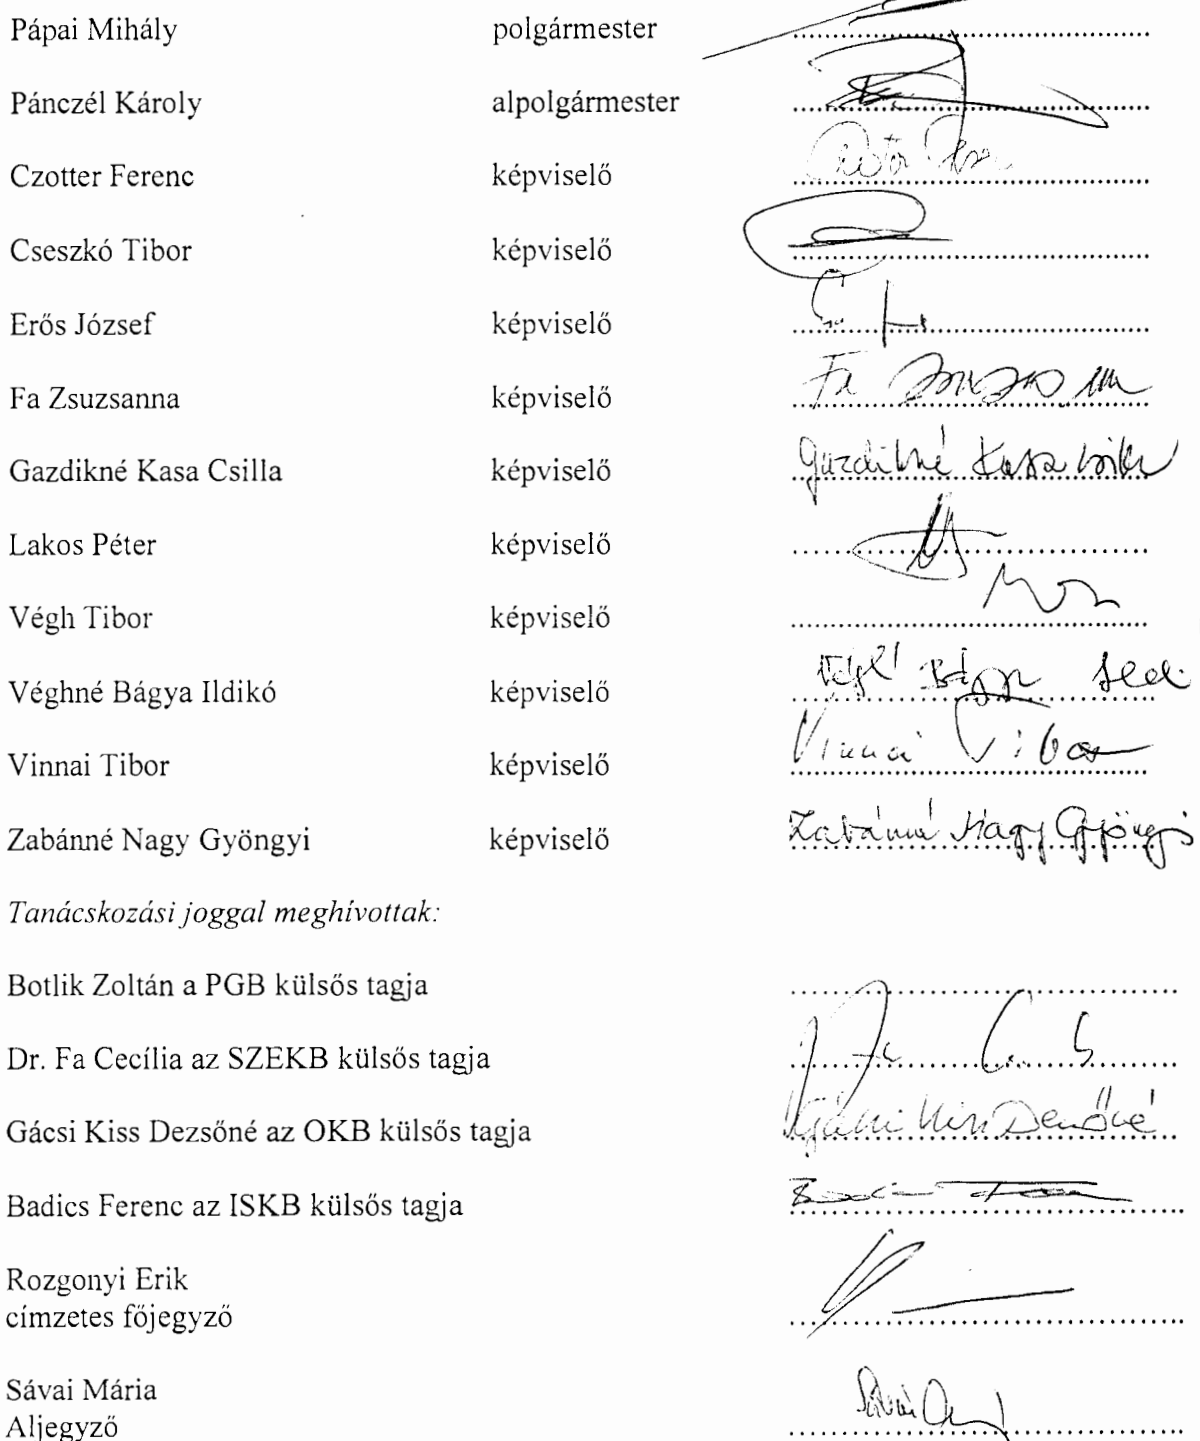 Pápai Mihály polgármester
Pánczél Károly alpolgármester
Czotter Ferenc képviselő
Cseszkó Tibor képviselő
Erős József képviselő
Fa Zsuzsanna képviselő Fa Zsuzsanna
Gazdikné Kasa Csilla képviselő Gazdikné Kasa Csilla
Lakos Péter képviselő
Végh Tibor képviselő
Véghné Bágya Ildikó képviselő
Vinnai Tibor képviselő Vinnai Tibor
Zabánné Nagy Gyöngyi képviselő Zabánné Nagy Gyöngyi
Tanácskozási joggal meghívottak:
Botlik Zoltán a PGB külsős tagja
Dr. Fa Cecília az SZEKB külsős tagja
Gácsi Kiss Dezsőné az OKB külsős tagja Gácsi Kiss Dezsőné
Badics Ferenc az ISKB külsős tagja
Rozgonyi Erik
címzetes főjegyző
Sávai Mária
Aljegyző